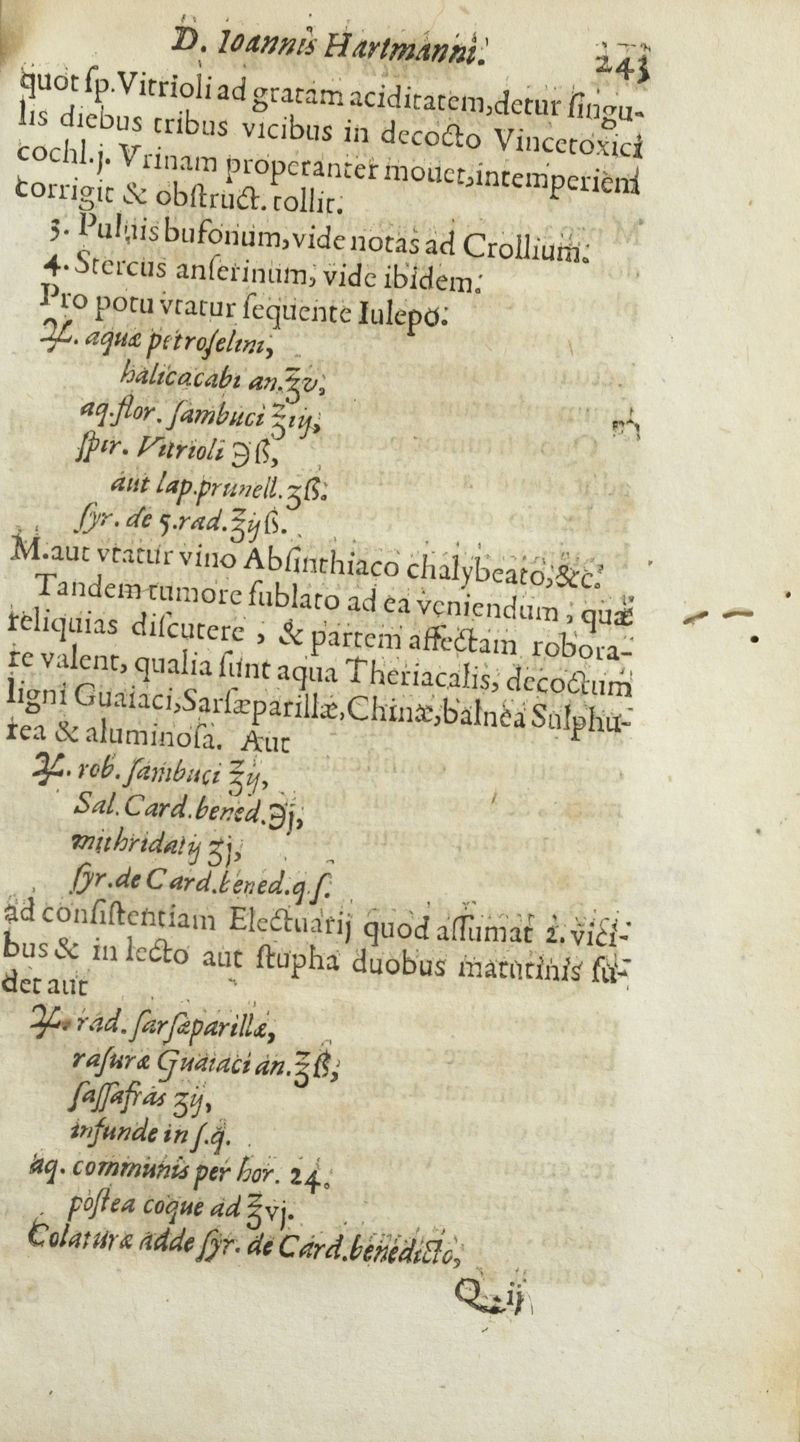 D. Ioannis Hartmanni. 243
quot ſp. Vitrioli ad gratam aciditatem, detur ſingu-
lis diebus tribus vicibus in decocto Vincetoxici
cochl.j. Vrinam properanter mouet, intemperiem
corrigit & obſtruct. tollit.
3. Puluis bufonum, vide notas ad Crollium.
4. Stercus anſerinum, vide ibidem.
Pro potu vtatur ſequente Iulepo:
℞. aquæ petroſelini,
halicacabi an.℥v,
aq.flor. ſambuci ℥iij,
ſpir. Vitrioli ℈ß,
aut lap.prunell.ʒß.
ſyr. de 5.rad.℥ijß.
M. aut vtatur vino Abſinthiaco chalybeato, &c.
Tandem tumore ſublato ad ea veniendum, quæ
reliquias diſcutere, & partem affectam robora-
re valent, qualia ſunt aqua Theriacalis, decoctum
ligni Guaiaci, Sarſæparillæ, Chinæ, balnea Sulphu-
rea & aluminoſa. Aut
℞. rob. ſambuci ℥ij,
Sal. Card. bened.℈j,
mithridatij ʒj,
ſyr. de Card. bened.q.ſ.
ad conſiſtentiam Electuarij quod aſſumat 2. vici-
bus & in lecto aut ſtupha duobus matutinis ſu-
det aut
℞. rad. ſarſæparillæ,
raſuræ Guaiaci an.℥ß,
ſaſſafras ʒij,
infunde in ſ.q.
aq. communis per hor. 24.
poſtea coque ad ℥vj.
Colaturæ adde ſyr. de Card. benedicto,
Q ij